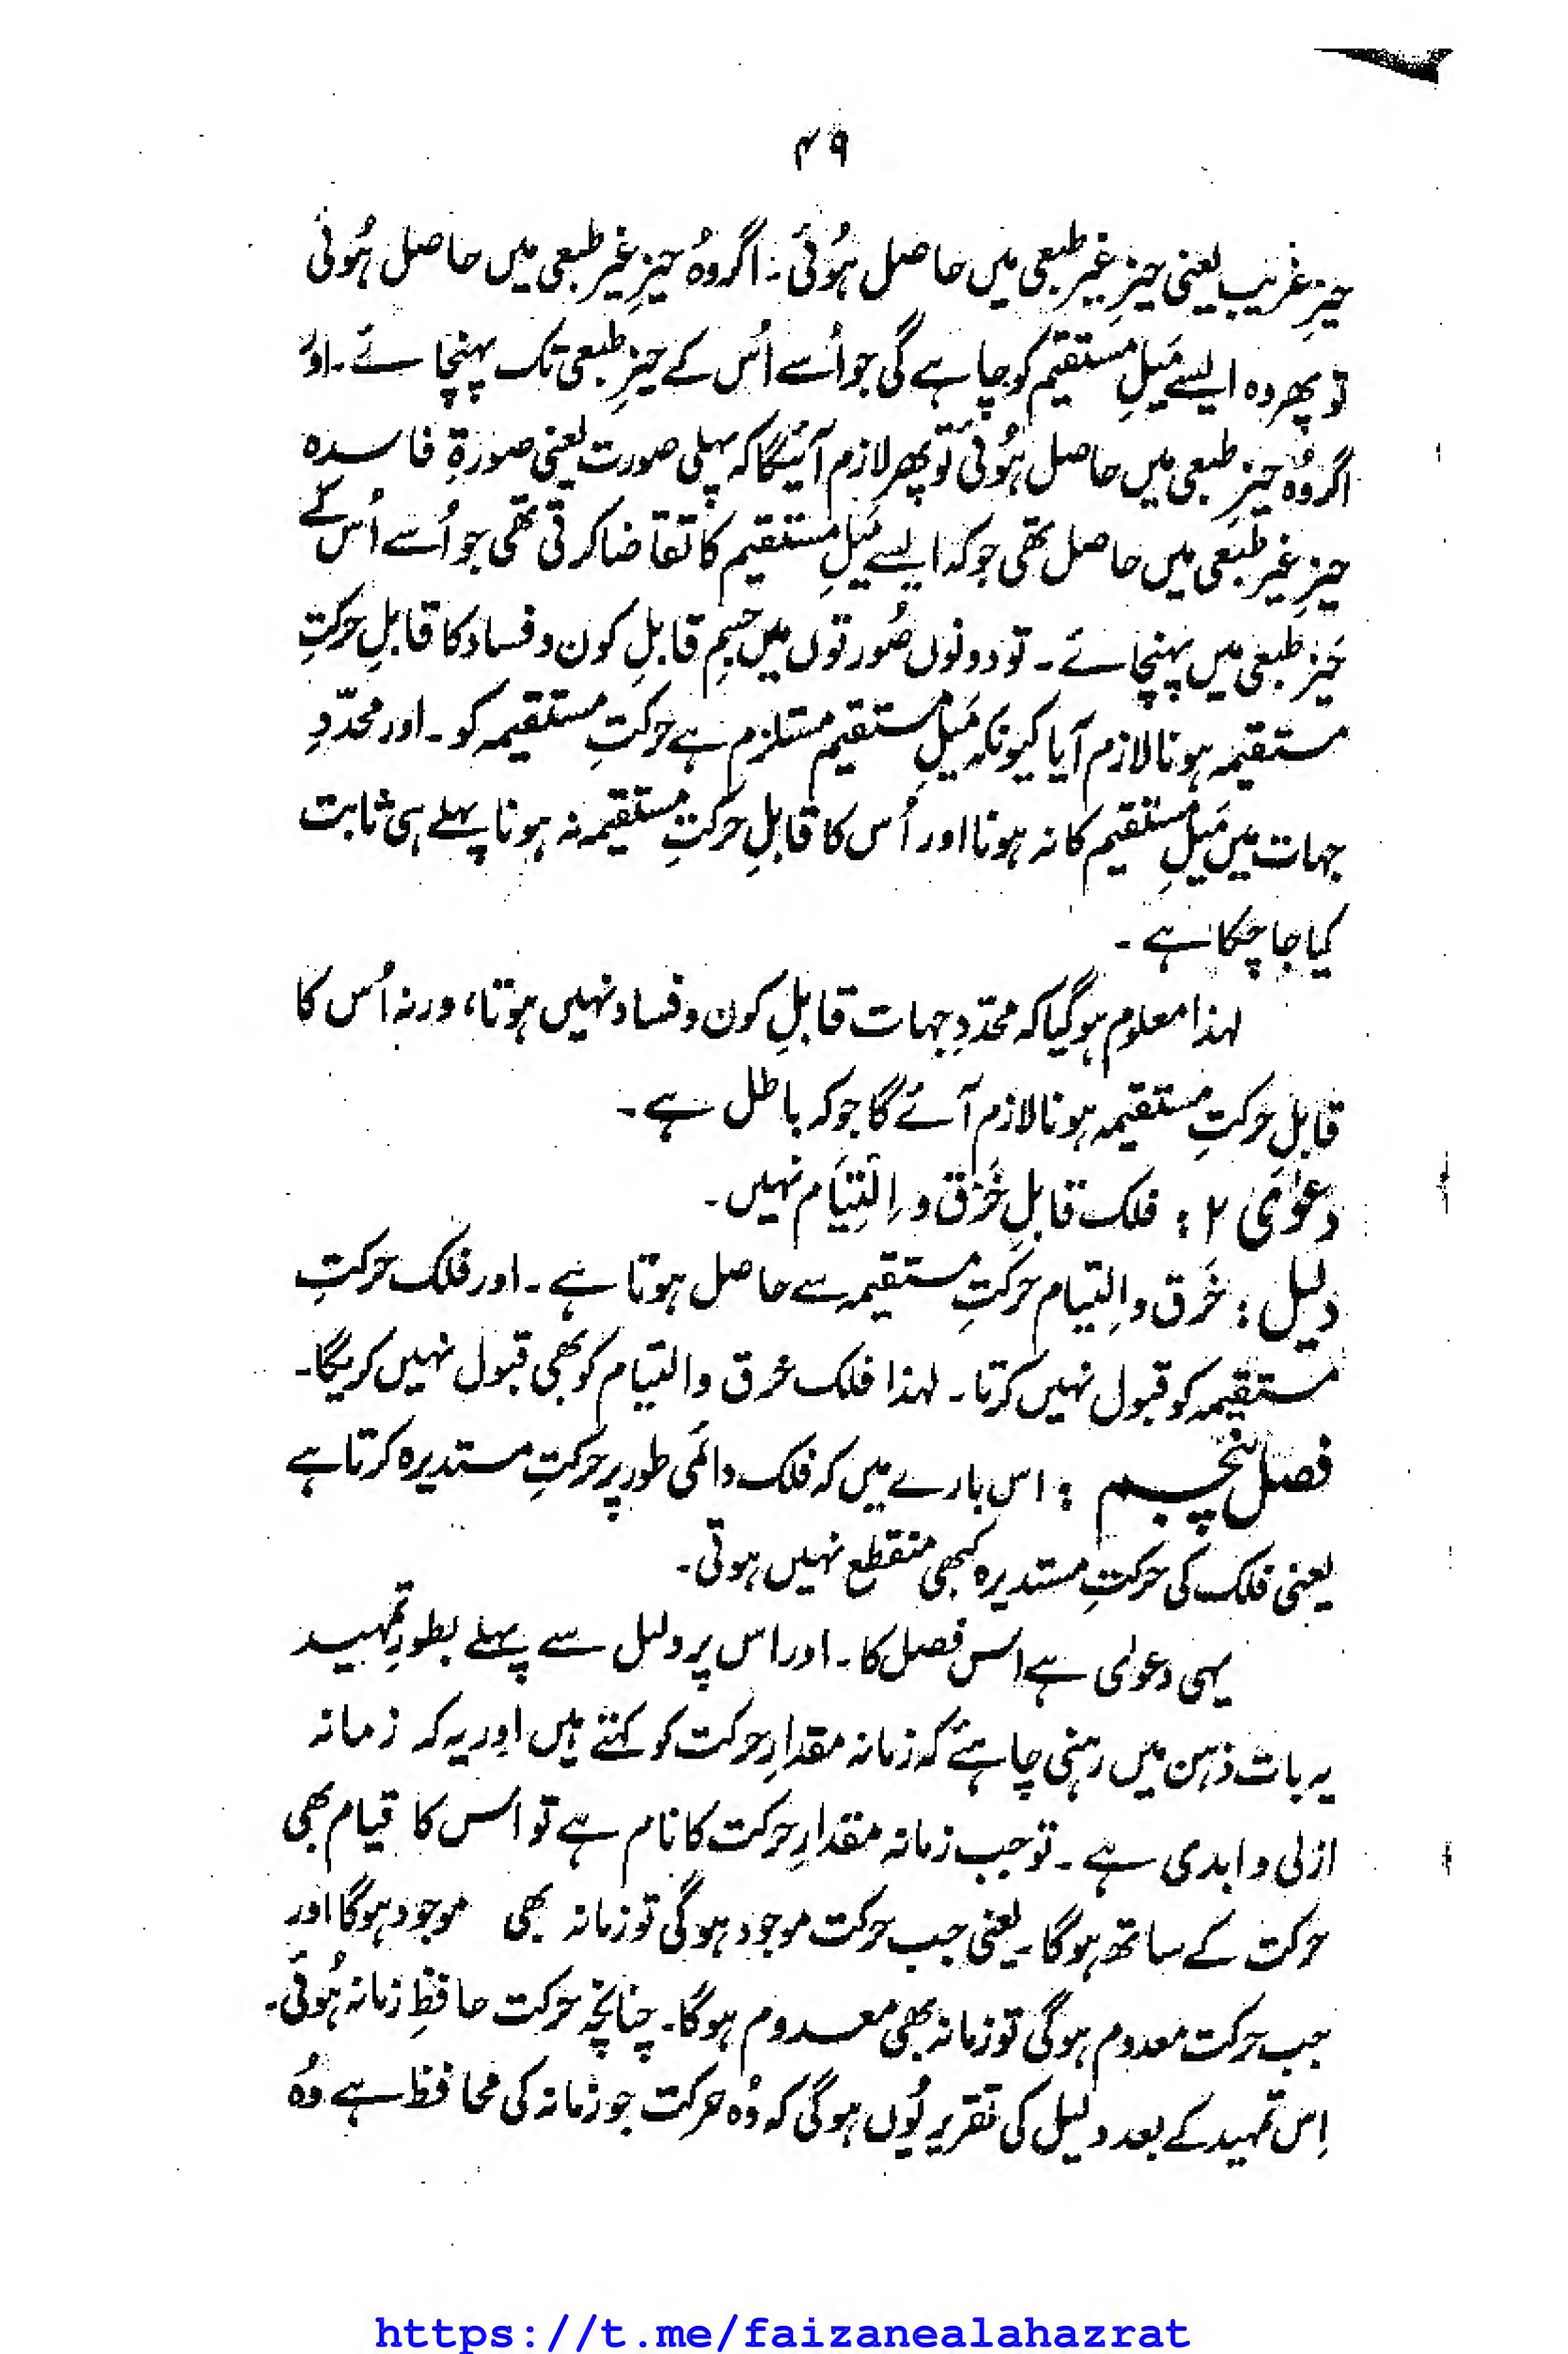 ۴۹
حیزِ غریب یعنی حیزِ غیر طبعی میں حاصل ہُوئی ۔ اگر وہُ حیزِ غیر طبعی میں حاصل ہُوئی
تو پھر وہ ایسے مَیلِ مستقیم کو چاہے گی جو اُسے اُس کے حیزِ طبعی تک پہنچائے ۔ اور
اگر وہُ حیزِ طبعی میں حاصل ہُوئی تو پھر لازم آئیگا کہ پہلی صورت یعنی صورۃِ فاسدہ
حیزِ غیر طبعی میں حاصل تھی جو کہ ایسے مَیلِ مستقیم کا تقاضا کرتی تھی جو اُسے اُس کے
حَیزِ طبعی میں پہنچائے ۔ تو دونوں صُورتوں میں جسمِ قابلِ کون و فساد کا قابلِ حرکتِ
مستقیمہ ہونا لازم آیا کیونکہ مَیلِ مستقیم مستلزم ہے حرکتِ مستقیمہ کو ۔ اور محدّدِ
جہات میں مَیلِ مستقیم کا نہ ہونا اور اُس کا قابلِ حرکتِ مستقیمہ نہ ہونا پہلے ہی ثابت
کیا جا چکا ہے ۔
لہذا معلوم ہو گیا کہ محدّدِ جہات قابلِ کون و فساد نہیں ہوتا، ورنہ اُس کا
قابلِ حرکتِ مستقیمہ ہونا لازم آئے گا جو کہ باطل ہے ۔
دعوٰی ۲ : فلک قابلِ خَرْق و اِلْتِیَام نہیں ۔
دلیل : خَرق و اِلتیام حرکتِ مستقیمہ سے حاصل ہوتا ہے ۔ اور فلک حرکتِ
مستقیمہ کو قبول نہیں کرتا ۔ لہذا فلک خرق و التیام کو بھی قبول نہیں کریگا ۔
فصل پنجم : اس بارے میں کہ فلک دائمی طور پر حرکتِ مستدیرہ کرتا ہے
یعنی فلک کی حرکتِ مستدیرہ کبھی منقطع نہیں ہوتی ۔
یہی دعوٰی ہے اس فصل کا ۔ اور اس پر دلیل سے پہلے بطورِ تمہید
یہ بات ذہن میں رہنی چاہئے کہ زمانہ مقدارِ حرکت کو کہتے ہیں اور یہ کہ زمانہ
ازلی و ابدی ہے ۔ تو جب زمانہ مقدارِ حرکت کا نام ہے تو اس کا قیام بھی
حرکت کے ساتھ ہوگا ۔ یعنی جب حرکت موجود ہوگی تو زمانہ بھی موجود ہوگا اور
جب حرکت معدوم ہوگی تو زمانہ بھی معدوم ہوگا ۔ چنانچہ حرکت حافظِ زمانہ ہُوئی ۔
اِس تمہید کے بعد دلیل کی تقریر یُوں ہوگی کہ وُہ حرکت جو زمانہ کی محافظ ہے وُہ
https://t.me/faizanealahazrat